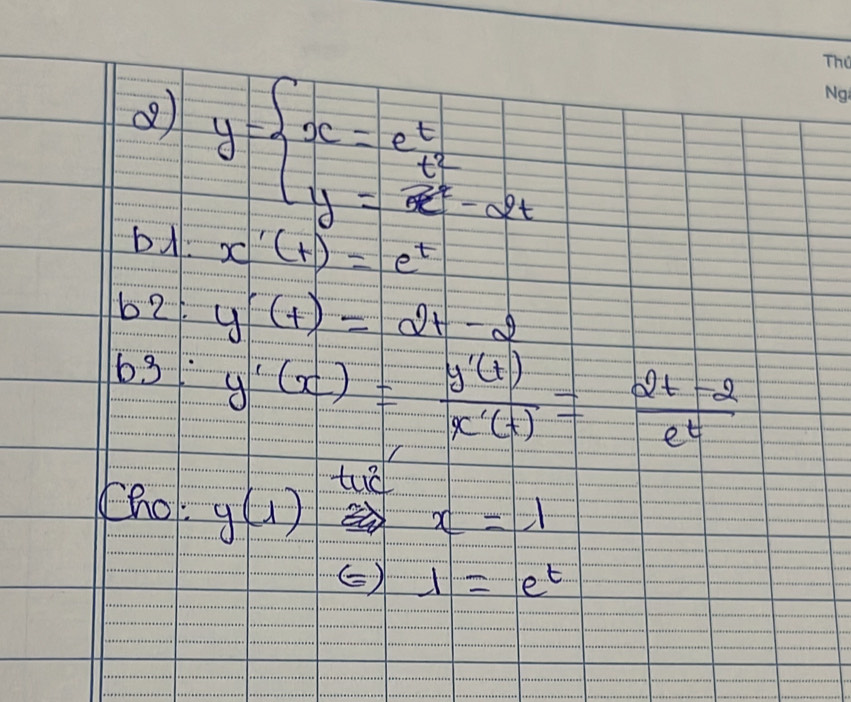 Thứ
Ngà
2) y = { x = e^t
y = t² - 2t
b1: x'(t) = e^t
b2: y'(t) = 2t - 2
b3: y'(x) = y'(t) / x'(t) = 2t - 2 / e^t
Cho: y(1) tức x = 1
(=) 1 = e^t